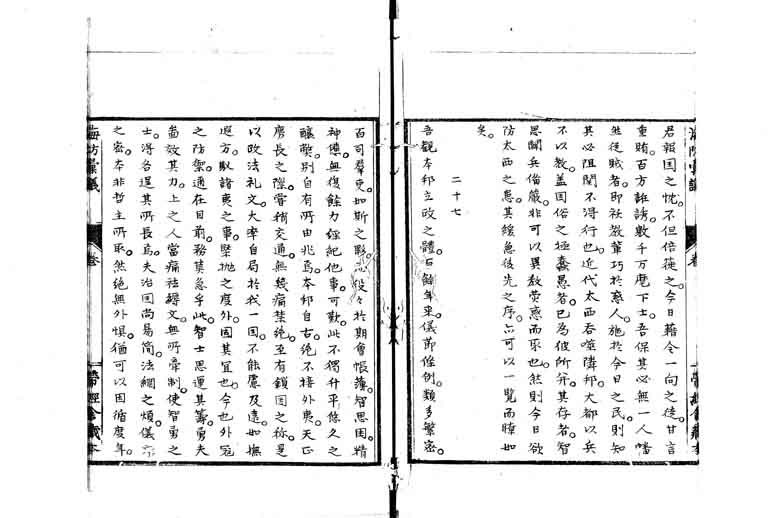 海防彙議
卷
帶經舍藏本
君報国之忱不但倍蓰之今日藉令一向之徒甘言
重賄百方誑誘數千万麾下士吾保其必無一人幡
然從賊者即社教輩巧於惑人施於今日之民則知
其必阻閡不得行也近代太西吞噬隣邦大都以兵
不以教蓋因俗之極蠢愚者已為彼所并其存者智
思闘兵備嚴非可以異教荧惑而取也然則今日欲
防太西之患其緩急後先之序亦可以一覧而瞭如
矣
二十七
吾觀本邦立政之體百餘年来儀節條例類多繁密
百司羣吏如斯之夥役々於期會帳簿智思困精
神憊無復餘力經紀他事可歎此不獨升平悠久之
釀獘別自有所由兆焉本邦自古絶不接外夷天正
慶長之際嘗稍交通無幾痛禁絶至有鎖国之称是
以政法礼文大率自局於我一国不能慮及遠如撫
遐方馭諸夷之事槩抛之度外固其宜也今也外冦
之防禦逼在目前務莫急乎此智士思運其籌勇夫
奮效其力上之人當痛祛縟文無所牽制使智勇之
士得各逞其所長焉夫治国尚易簡法網之煩儀文
之密本非哲主所取然絶無外惧猶可以因循度年
海防彙議
卷
帶經舍藏本